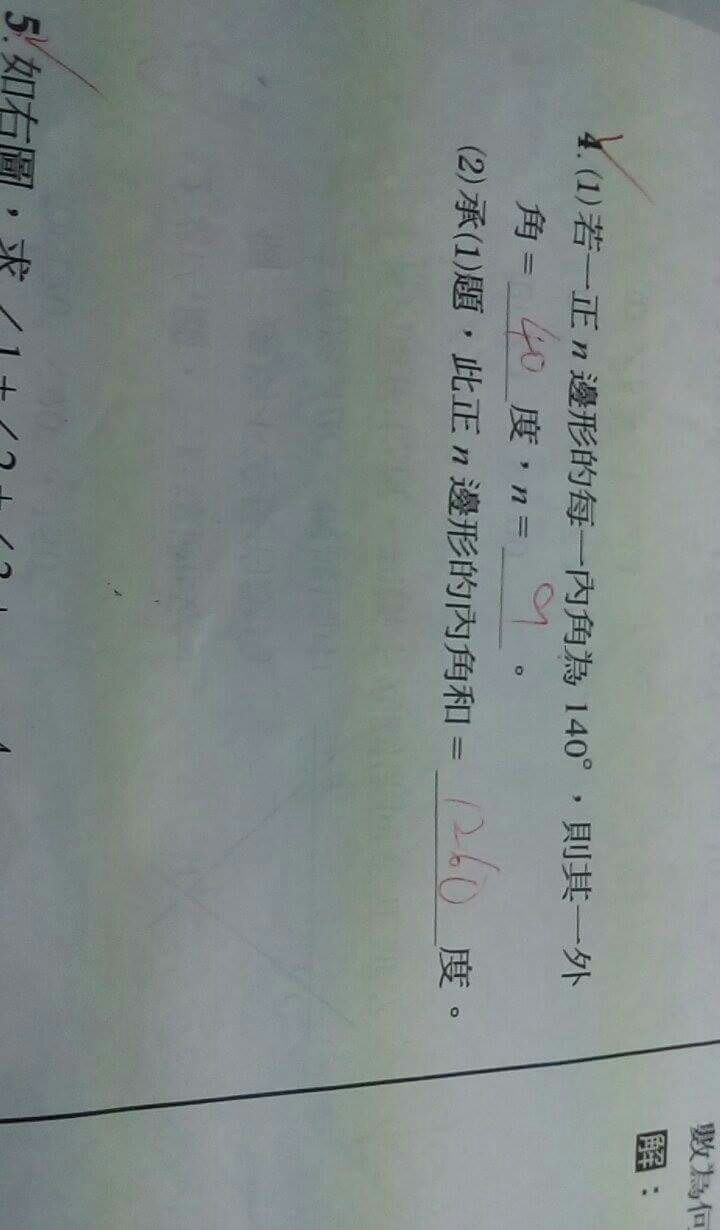 4. (1)若一正 n 邊形的每一內角為 140°,則其一外
角= 40 度,n= 9 。
(2)承(1)題,此正 n 邊形的內角和= 1260 度。
5. 如右圖,求∠1+∠2+∠3+
數為何
解: